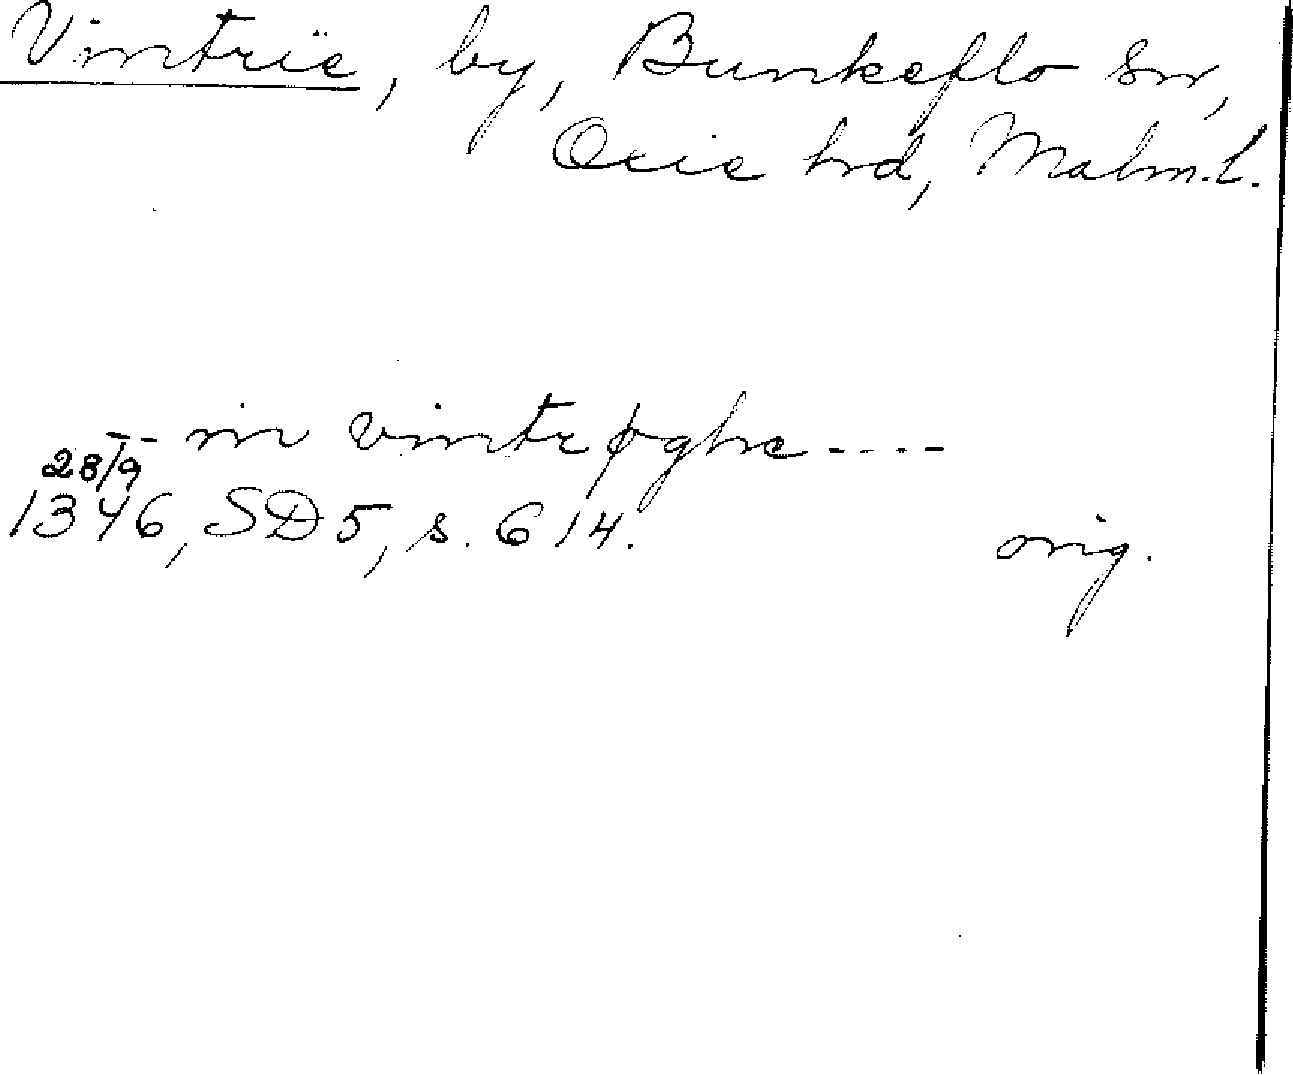 Vintrië, by, Bunkeflo sn,
Oxie hd, Malm.l.
-- in vintrøghe ----
28/9
1346, SD5, s. 614.
orig.